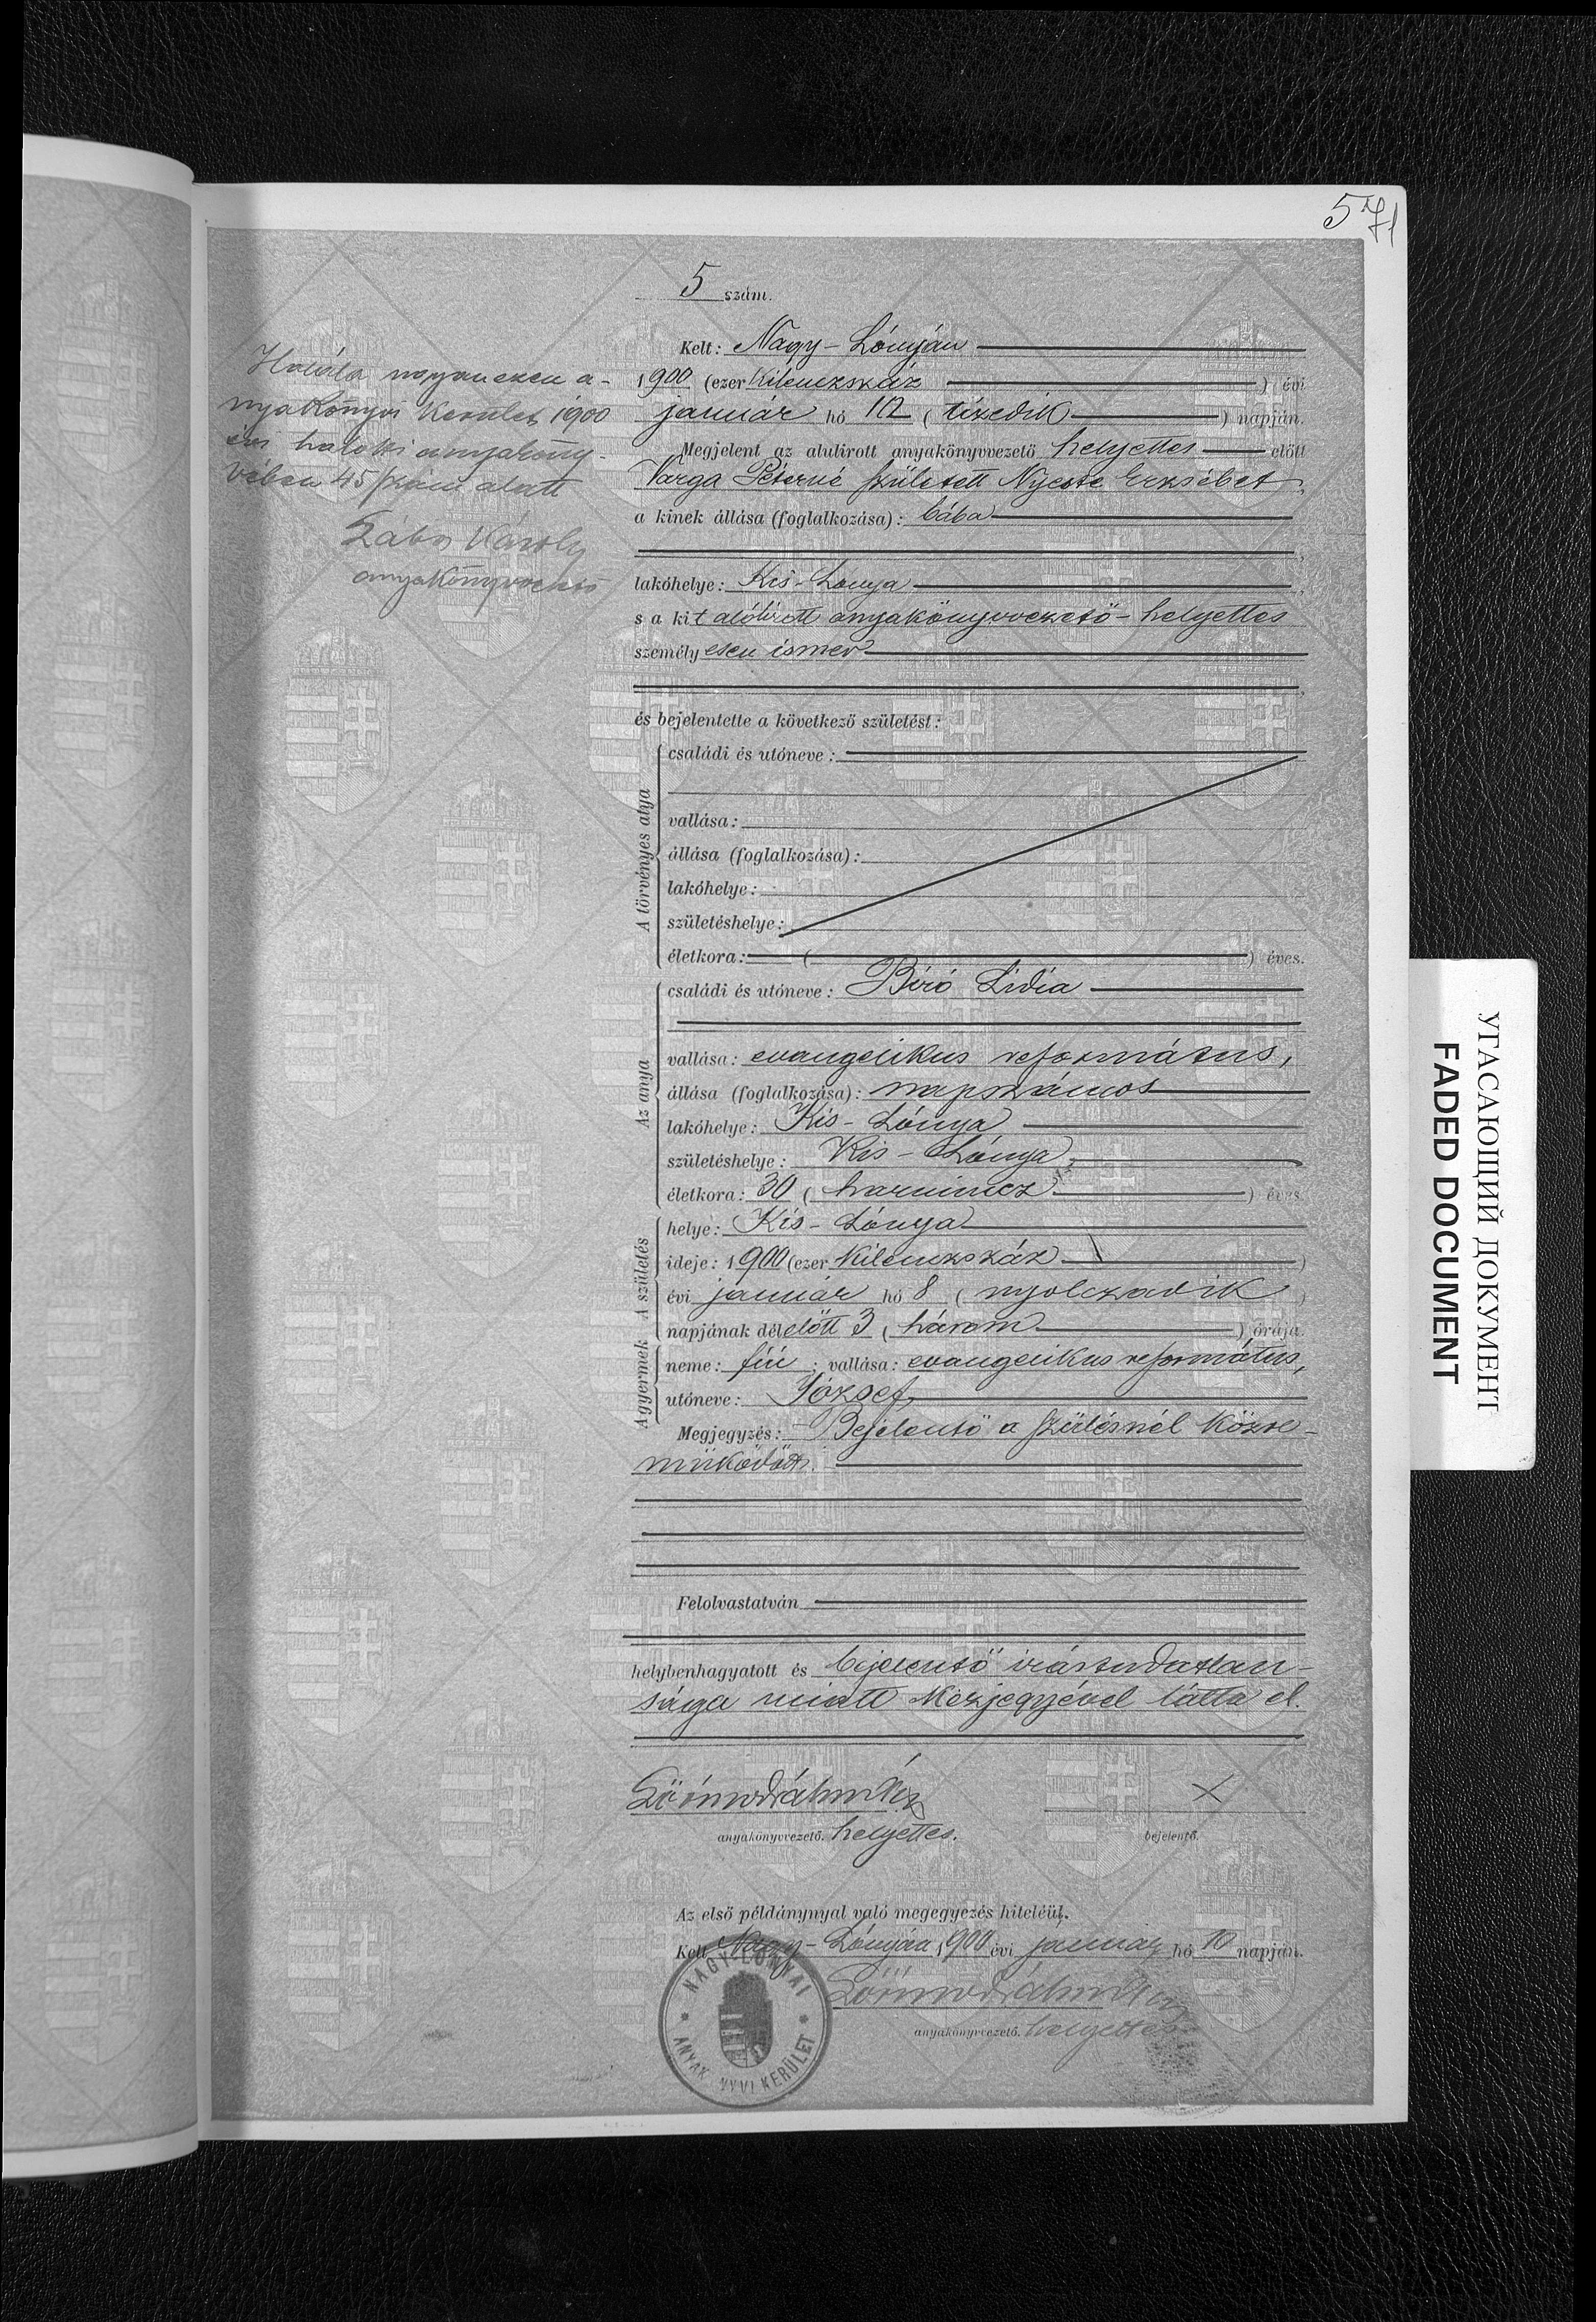 571
5 szám.
Kelt: Nagy-Lónyán
1900 (ezer kilenczszáz) évi
január hó 10 (tizedik) napján.
Megjelent az alulirott anyakönyvvezető helyettes előtt
Varga Péterné született Nyeste Erzsébet,
a kinek állása (foglalkozása): bába
lakóhelye: Kis-Lónya,
s a kit alólirott anyakönyvvezető-helyettes
személyesen ismer
és bejelentette a következő születést:
A törvényes atya
családi és utóneve:
vallása:
állása (foglalkozása):
lakóhelye:
születéshelye:
életkora: ( ) éves.
Az anya
családi és utóneve: Biró Lidia
vallása: evangelikus református,
állása (foglalkozása): napszámos
lakóhelye: Kis-Lónya
születéshelye: Kis-Lónya
életkora: 30 (harmincz) éves
A születés
helye: Kis-Lónya
ideje: 1900 (ezer kilenczszáz)
évi január hó 8 (nyolczadik)
napjának délelőtt 3 (három) órája.
A gyermek
neme: fiú; vallása: evangelikus református,
utóneve: József
Megjegyzés: Bejelentő a szülésnél közre-
működött.
Felolvastatván
helybenhagyatott és bejelentő irástudatlan-
sága miatt kézjegyével látta el.
X
anyakönyvvezető. helyettes. bejelentő.
Az első példánynyal való megegyezés hiteléül.
Kelt Nagy-Lónyán 1900 évi január hó 10 napján.
anyakönyvvezető. helyettes
NAGY-LÓNYAI
ANYAK NYVI KERÜLET
Halála ugyanezen a-
nyakönyvi kerület 1900
évi halotti anyaköny-
vében 45 szám alatt
Károly
anyakönyvvezető
УГАСАЮЩИЙ ДОКУМЕНТ
FADED DOCUMENT